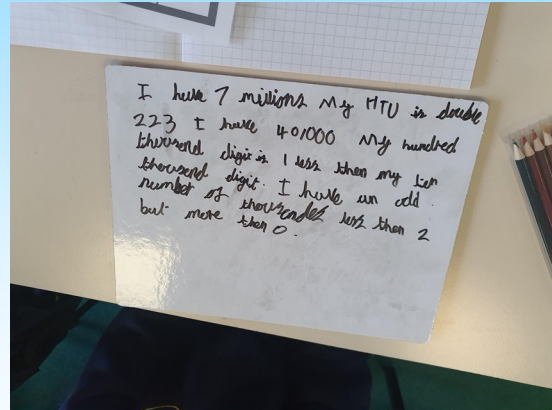 I have 7 millions My HTU is double
223 I have 40,000 My hundred
thousend digit is 1 less then my ten
thousend digit. I have an odd
number of thousendes less then 2
but more then 0.